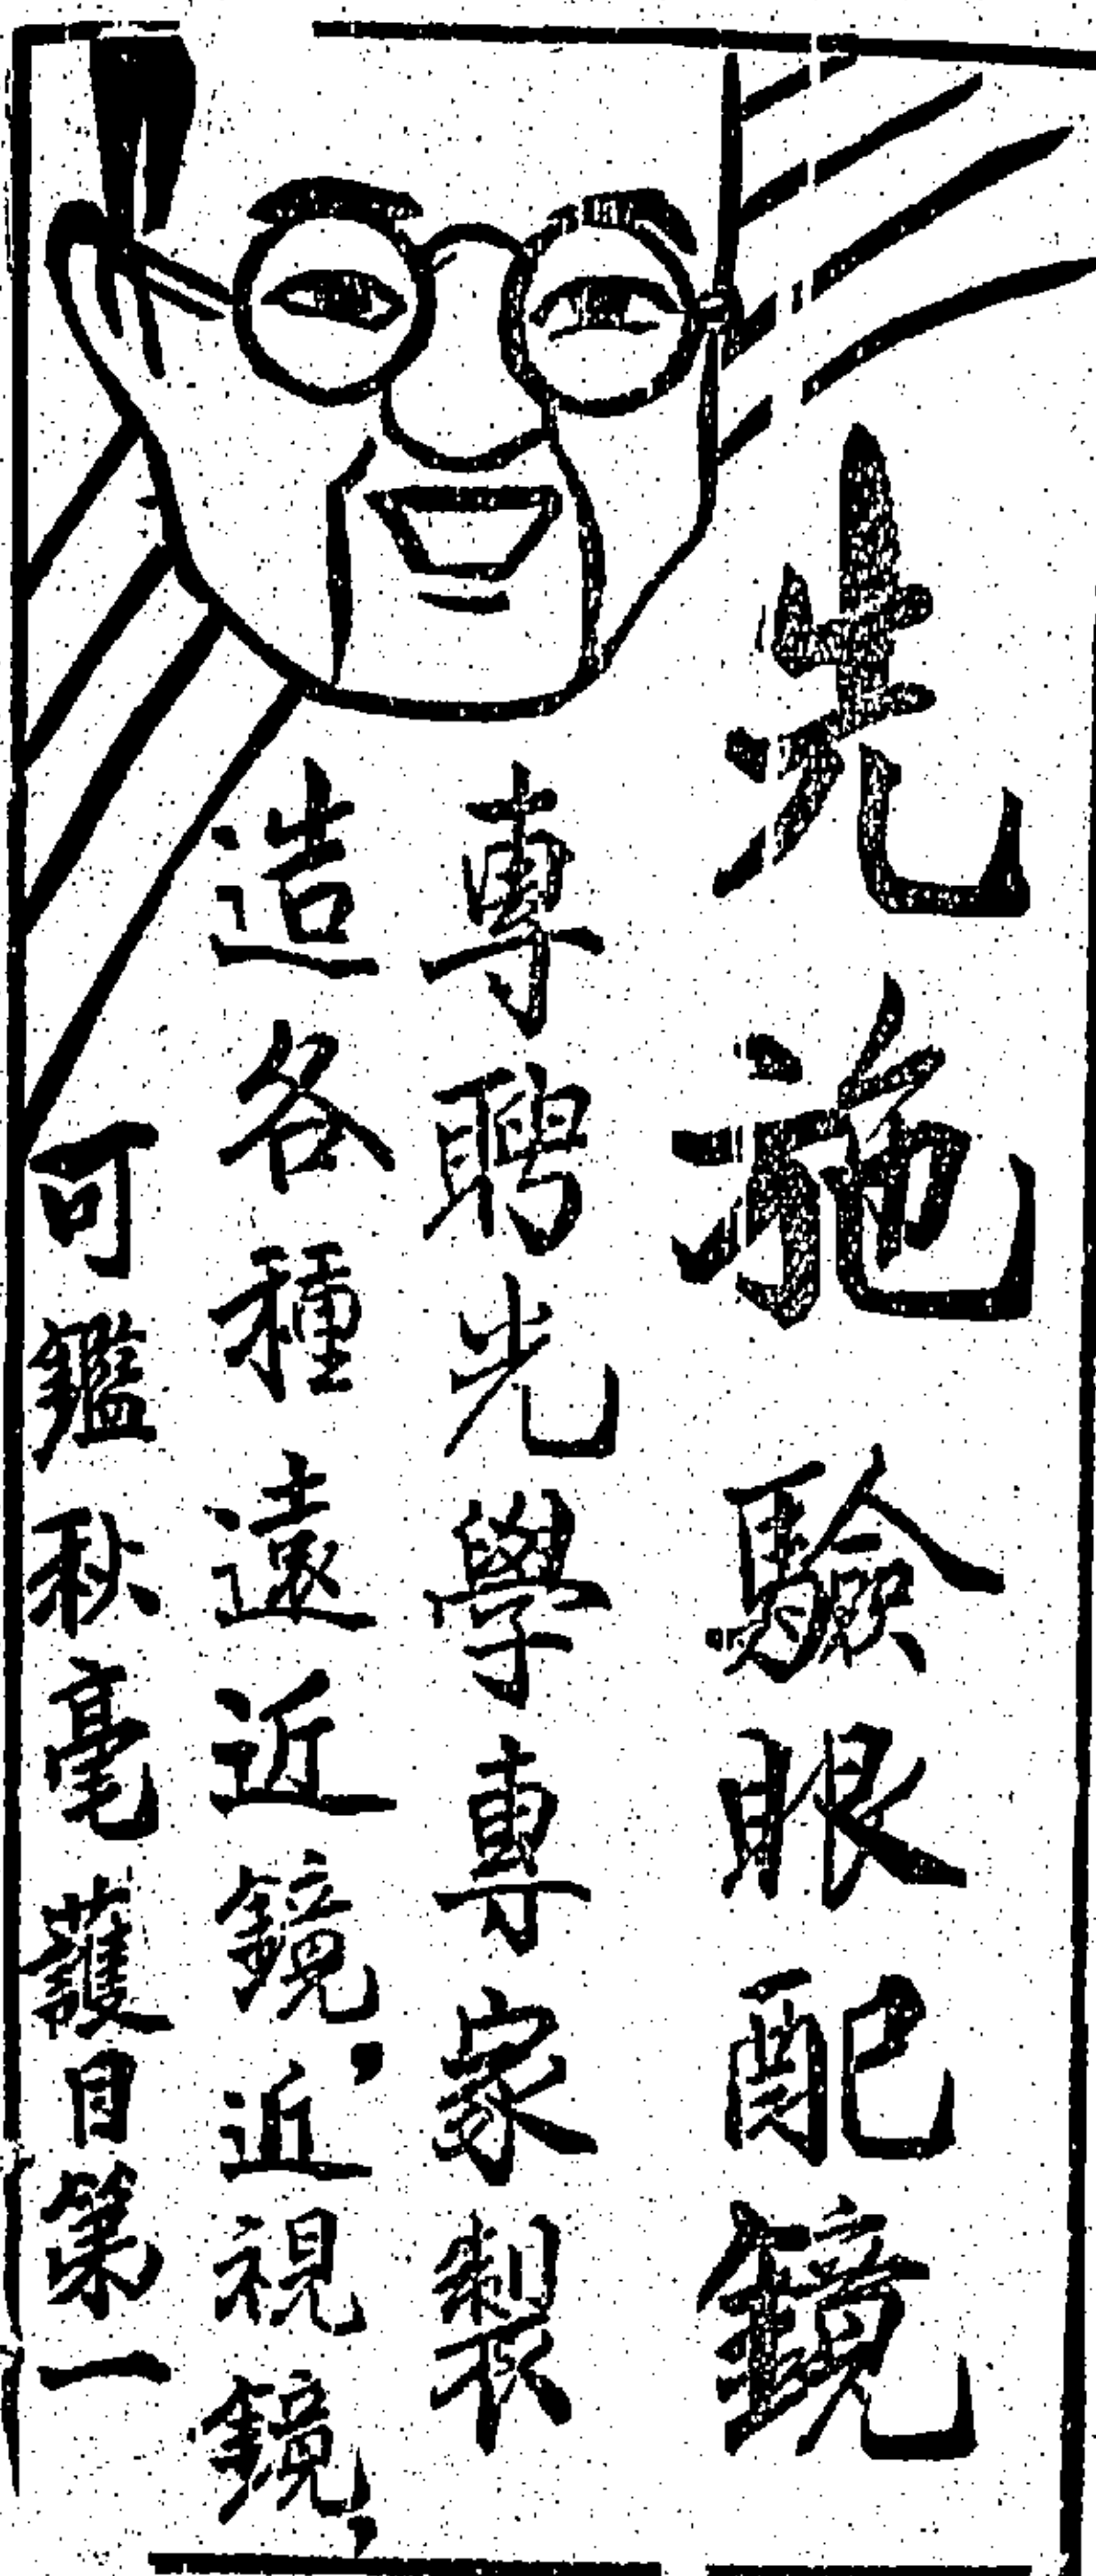 先施 驗眼配鏡
專聘光學專家製
造各種遠近鏡，近視鏡，
可鑑秋毫護目第一